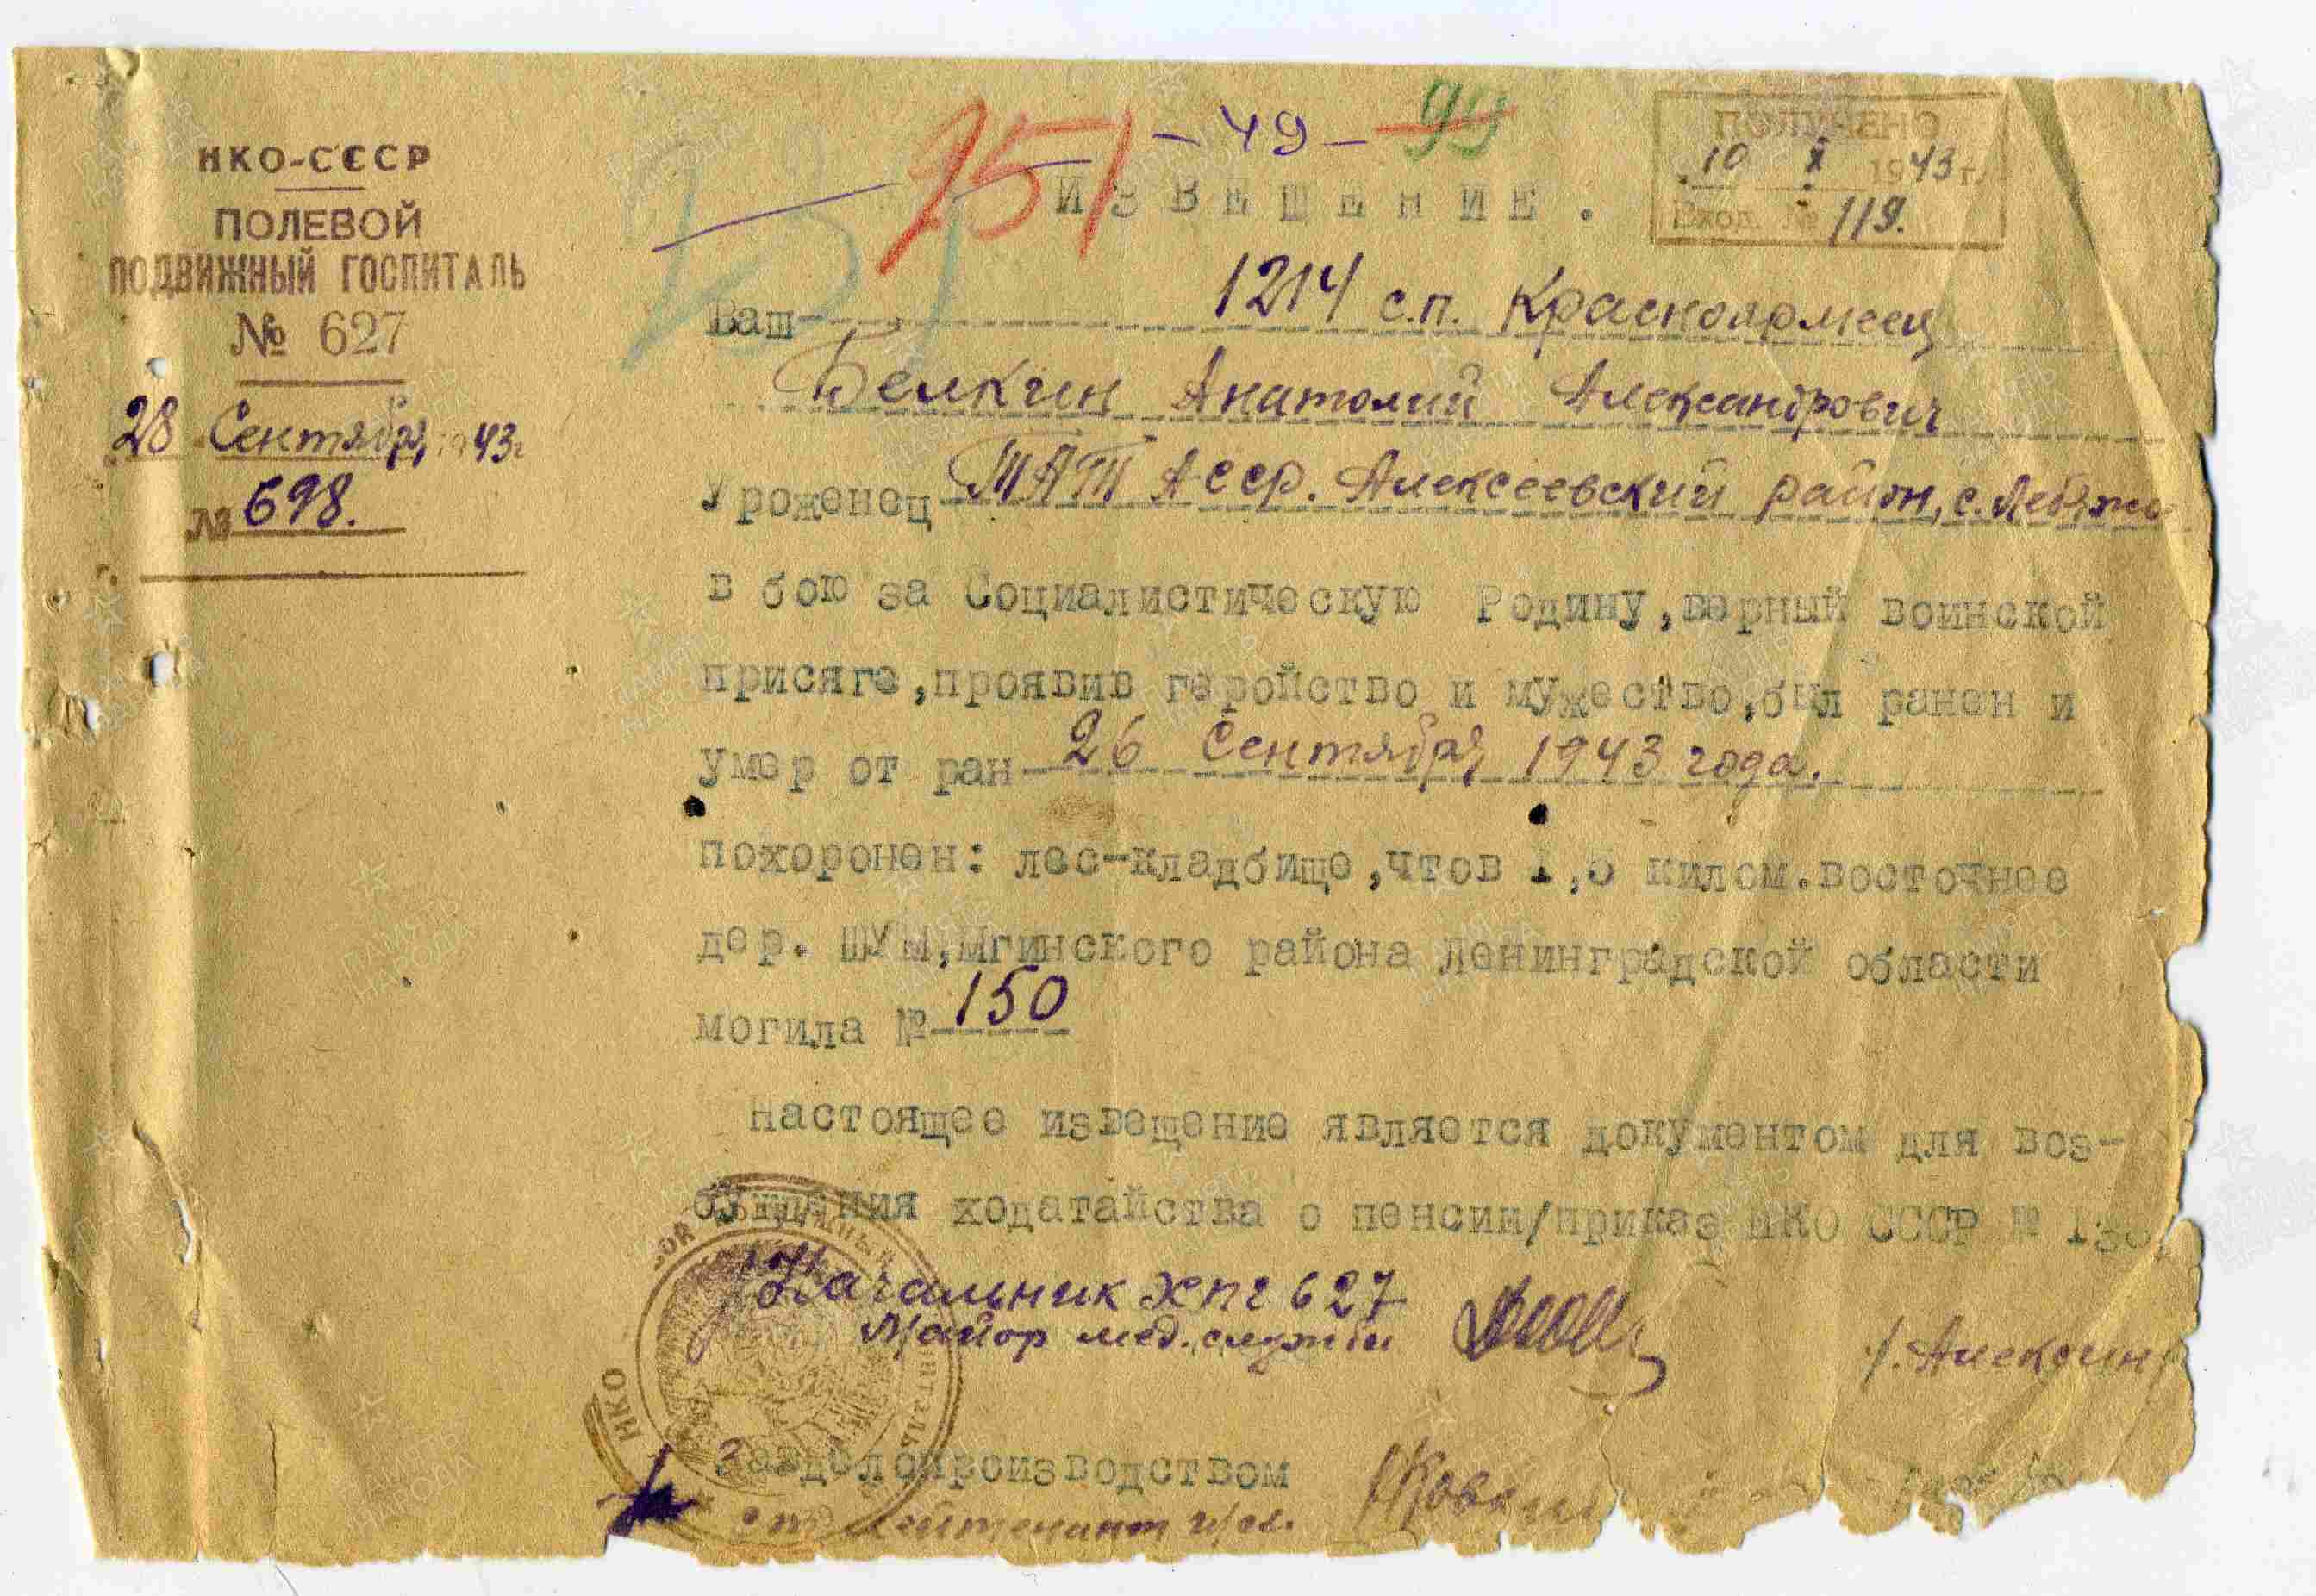 НКО-СССР
ПОЛЕВОЙ
ПОДВИЖНЫЙ ГОСПИТАЛЬ
№ 627
28 Сентября 1943г
№ 698.
151 - 49 - 99
ПОЛУЧЕНО
10 X 1943 г.
Вход. № 119.
ИЗВЕЩЕНИЕ.
Ваш 1214 с.п. Красноармеец
Белкин Анатолий Александрович
Уроженец ТАТ АССР. Алексеевский район, с.
в бою за Социалистическую Родину,верный воинской
присяге,проявив геройство и мужество,был ранен и
умер от ран 26 Сентября 1943 года.
похоронен: лес-кладбище,чтов 1,5 килом.восточнее
дер. ШУМ,Мгинского района Ленинградской области
могила № 150
Настоящее извещение является документом для воз-
буждения ходатайства о пенсии/приказ НКО СССР №
Начальник ХППГ 627
Майор мед. службы
НКО
Завделопроизводством
ст. лейтенант
ПАМЯТЬ НАРОДА